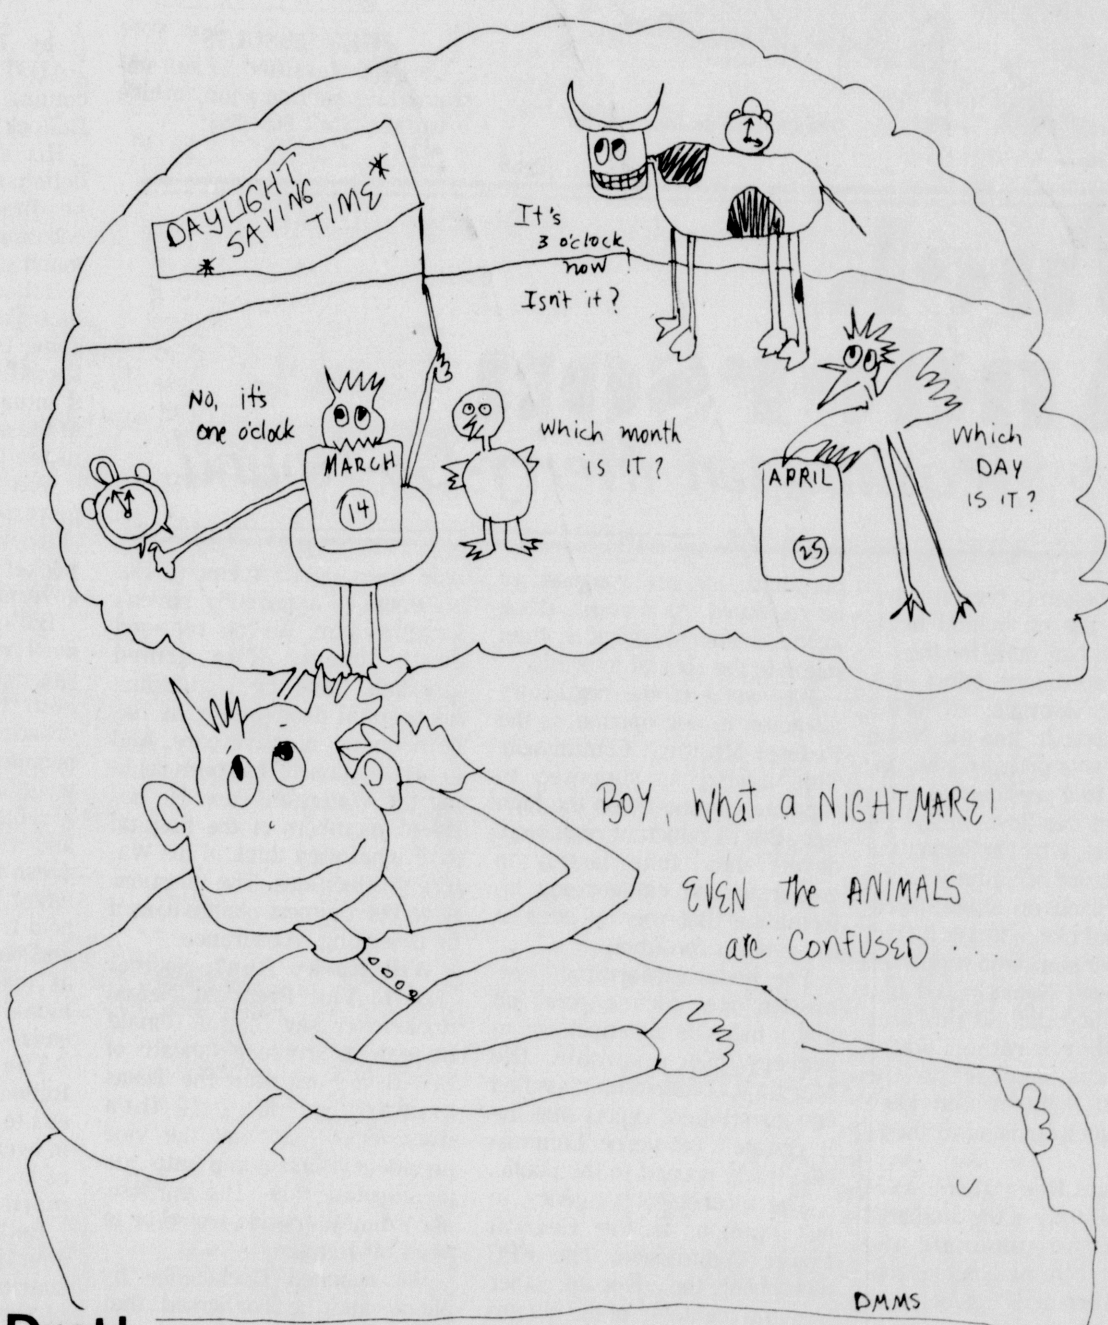 DAYLIGHT
SAVING
TIME
It's
3 o'clock
now
Isn't it?
No, it's
one o'clock
MARCH
14
Which month
IS IT?
APRIL
25
Which
DAY
IS IT?
BOY, What a NIGHTMARE!
EVEN the ANIMALS
are CONFUSED.
DMMS